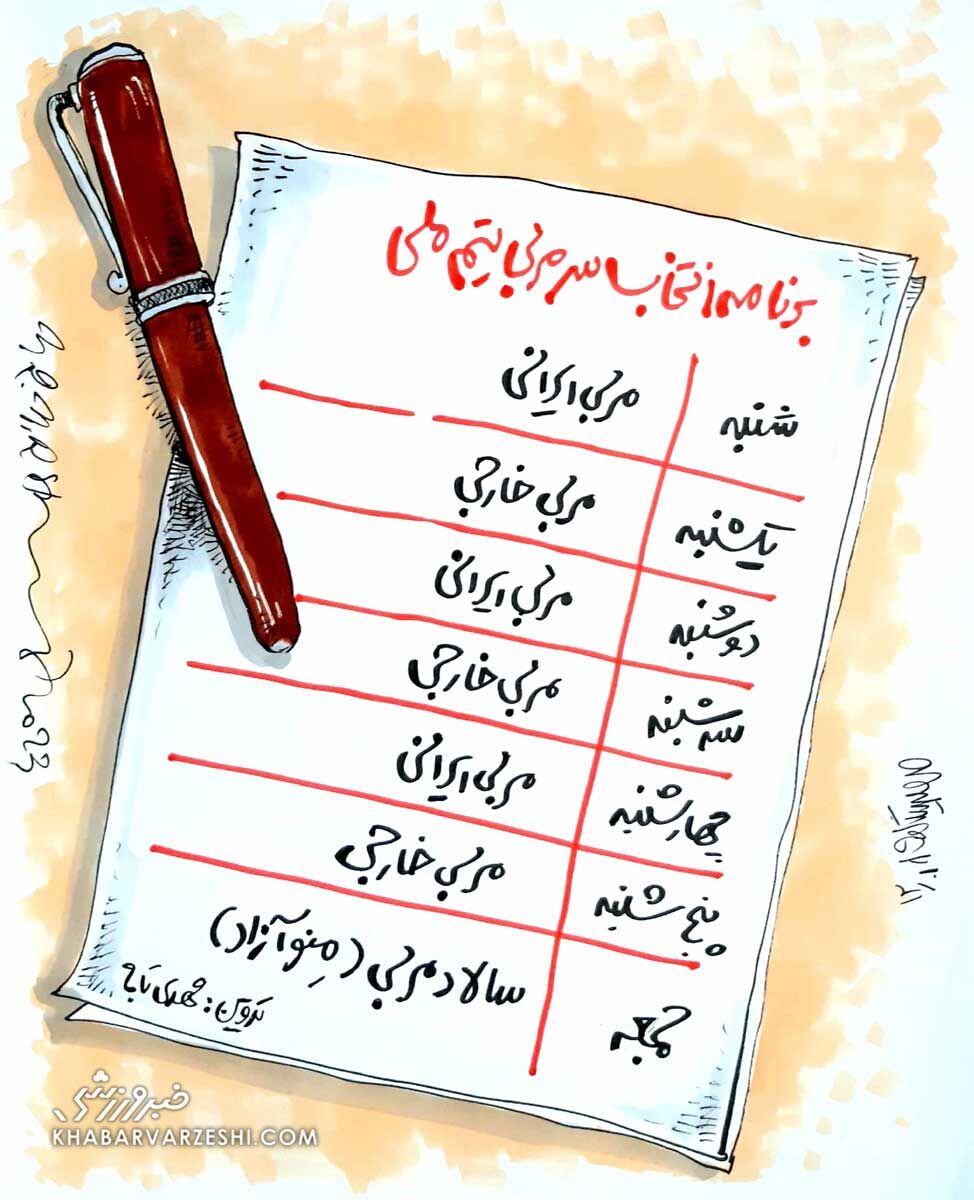 برنامه انتخاب سرمربی تیم ملی
شنبه مربی ایرانی
یکشنبه مربی خارجی
دوشنبه مربی ایرانی
سه شنبه مربی خارجی
چهارشنبه مربی ایرانی
پنج شنبه مربی خارجی
جمعه سالاد مربی (مِنو آزاد)
تدوین: مهدی تاج
خبرورزشی
KHABARVARZESHI.COM